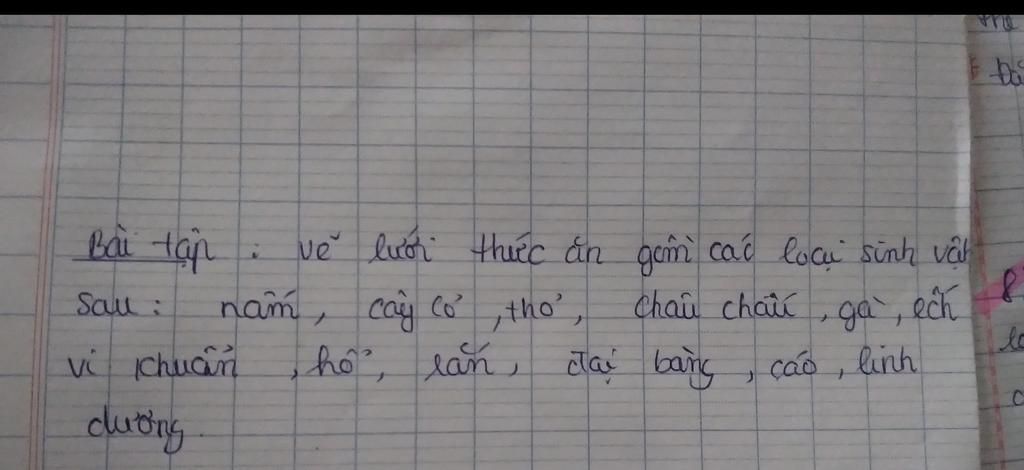 Bài tập : vẽ lưới thức ăn gồm các loại sinh vật
sau : nấm, cây cỏ, thỏ, châu chấu, gà, ếch
vi khuẩn, hổ, rắn, đại bàng, cáo, linh
dương.